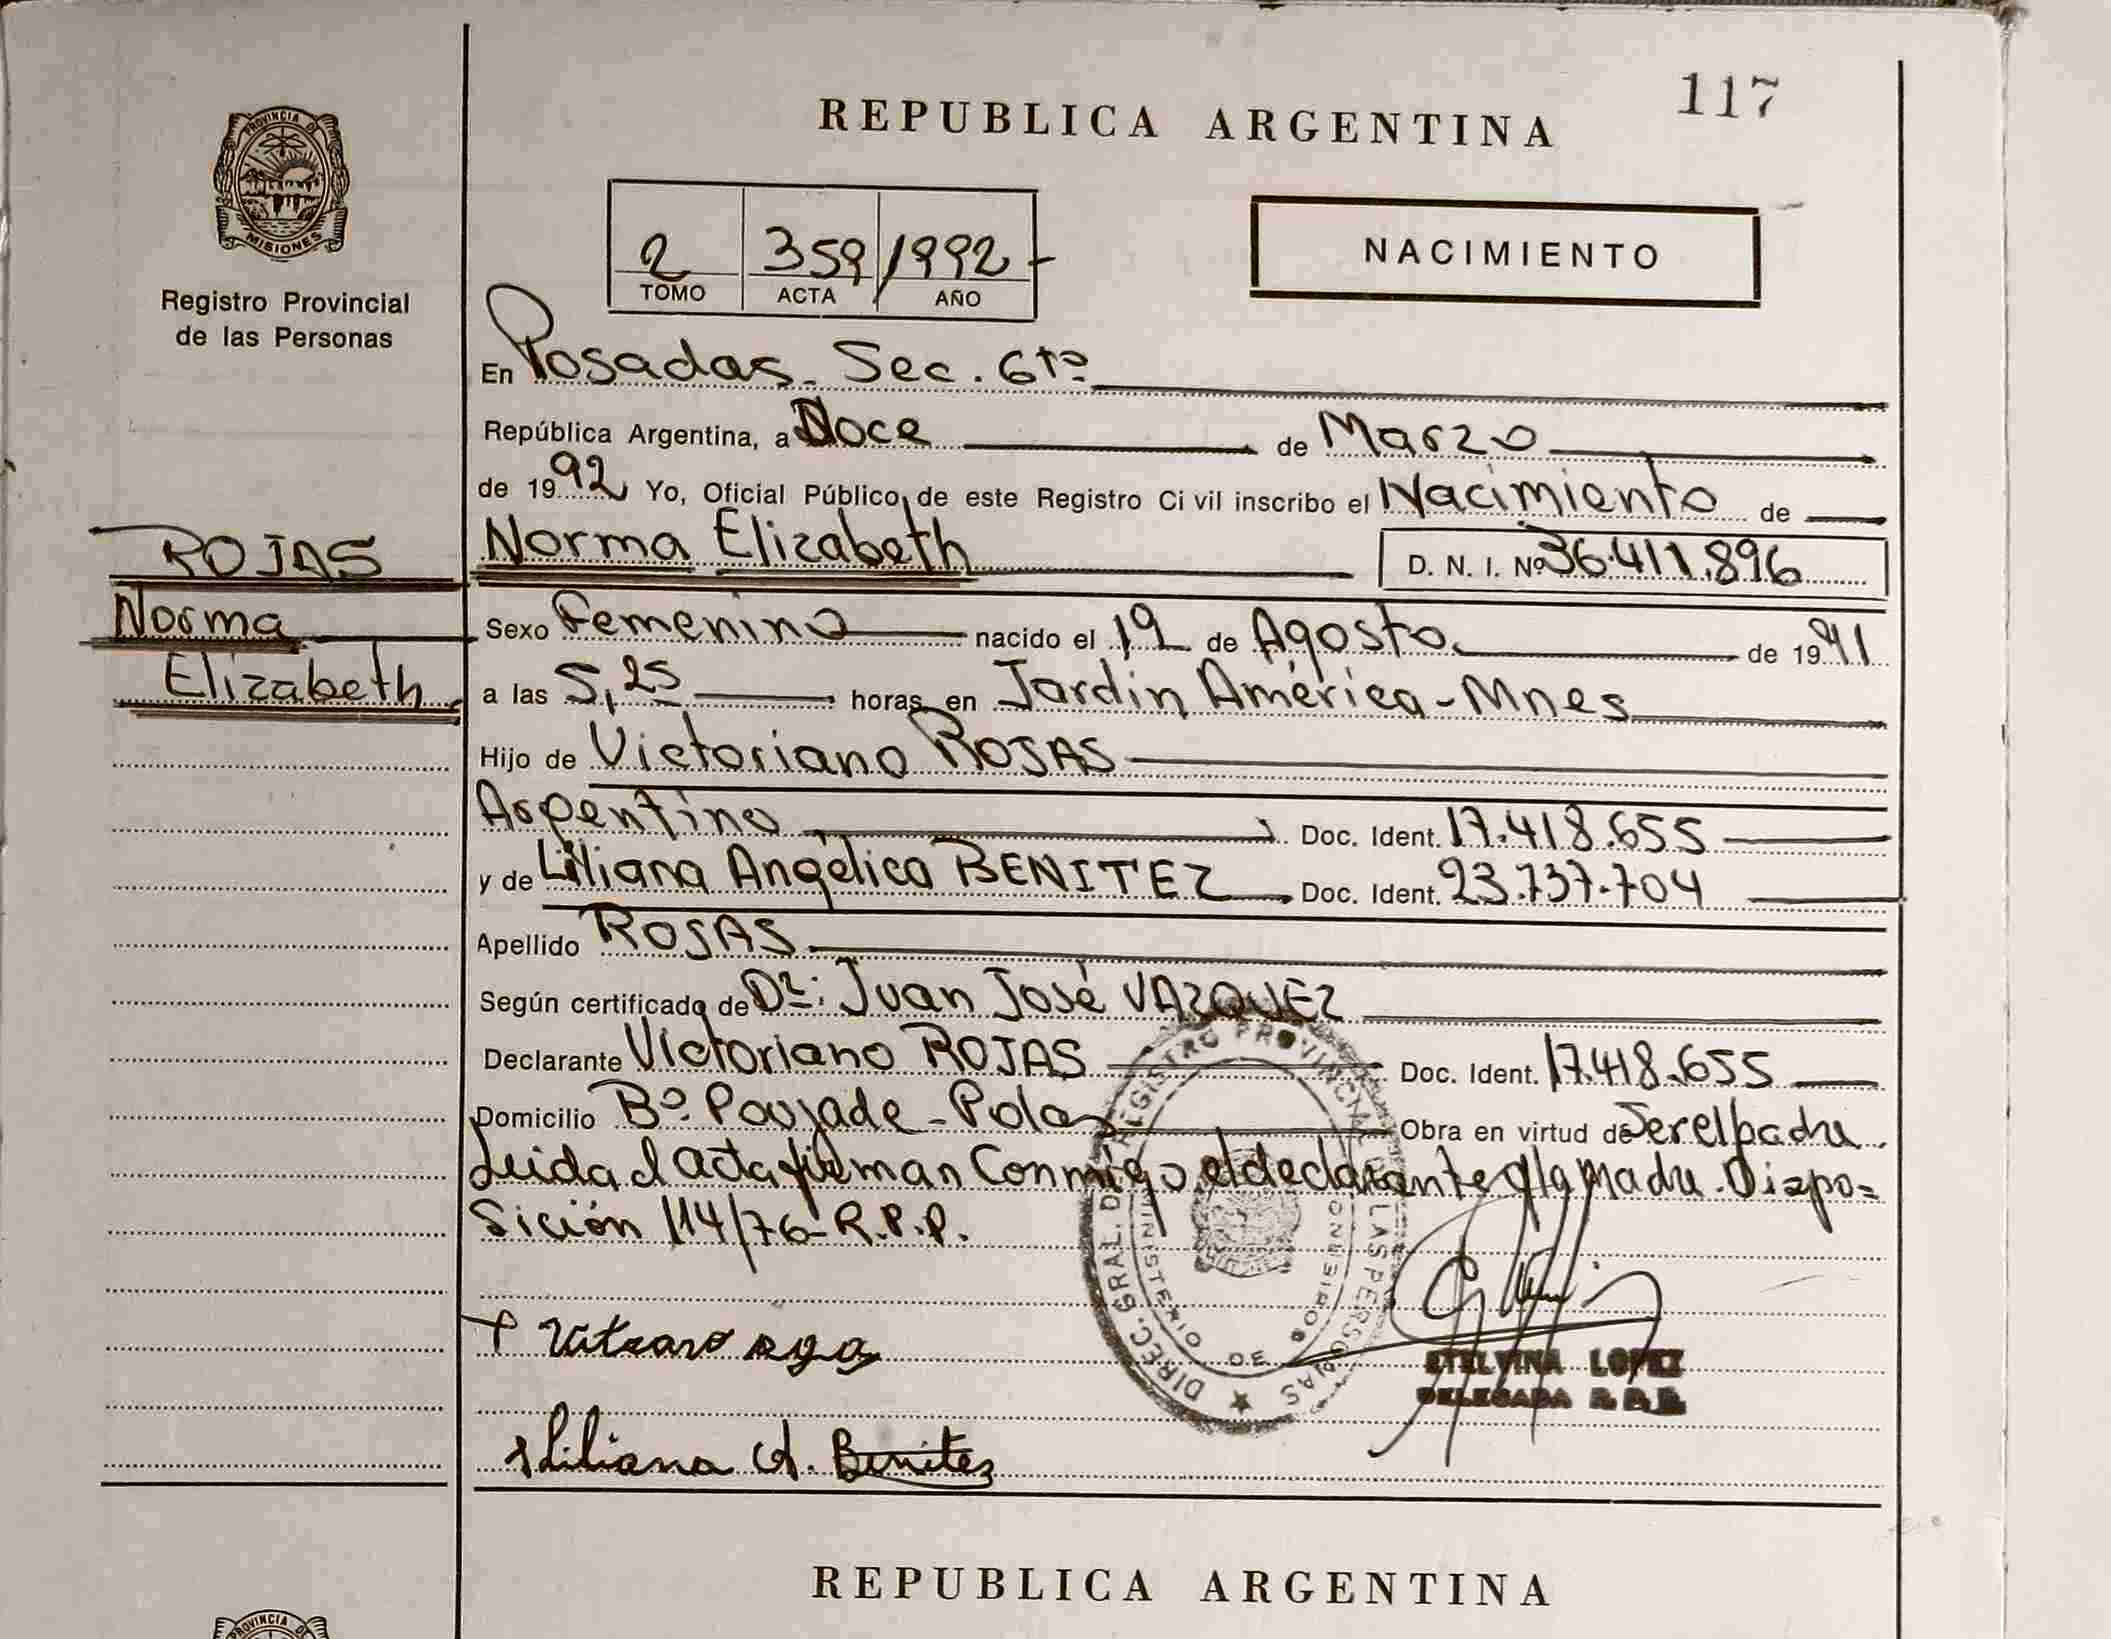 117
REPUBLICA ARGENTINA
PROVINCIA DE
MISIONES
Registro Provincial
de las Personas
2 359 /1992-
TOMO ACTA AÑO
NACIMIENTO
En Posadas. Sec. 6ta
República Argentina, a Doce de Marzo
de 1992 Yo, Oficial Público de este Registro Ci vil inscribo el Nacimiento de
ROJAS
Norma
Elizabeth
Norma Elizabeth D. N. I. Nº 36.411.896
Sexo Femenino nacido el 19 de Agosto de 1991
a las 5,25 horas, en Jardín América-Mnes
Hijo de Victoriano ROJAS
Argentino Doc. Ident. 17.418.655
y de Liliana Angélica BENITEZ Doc. Ident. 23.737.704
Apellido ROJAS
Según certificado de Dr: Juan José VAZQUEZ
Declarante Victoriano ROJAS Doc. Ident. 17.418.655
Domicilio Bº Poujade - Pdas Obra en virtud de Ser el padre
Leida el acta firman Conmigo el declarante y la Madre. Dispo=
sición 114/76-R.P.P.
DIREC. GRAL. DEL REGISTRO PROVINCIAL DE LAS PERSONAS
MINISTERIO DE
Liliana A. Benitez
ETELVINA LOPEZ
DELEGADA R.P.P.
REPUBLICA ARGENTINA
PROVINCIA DE